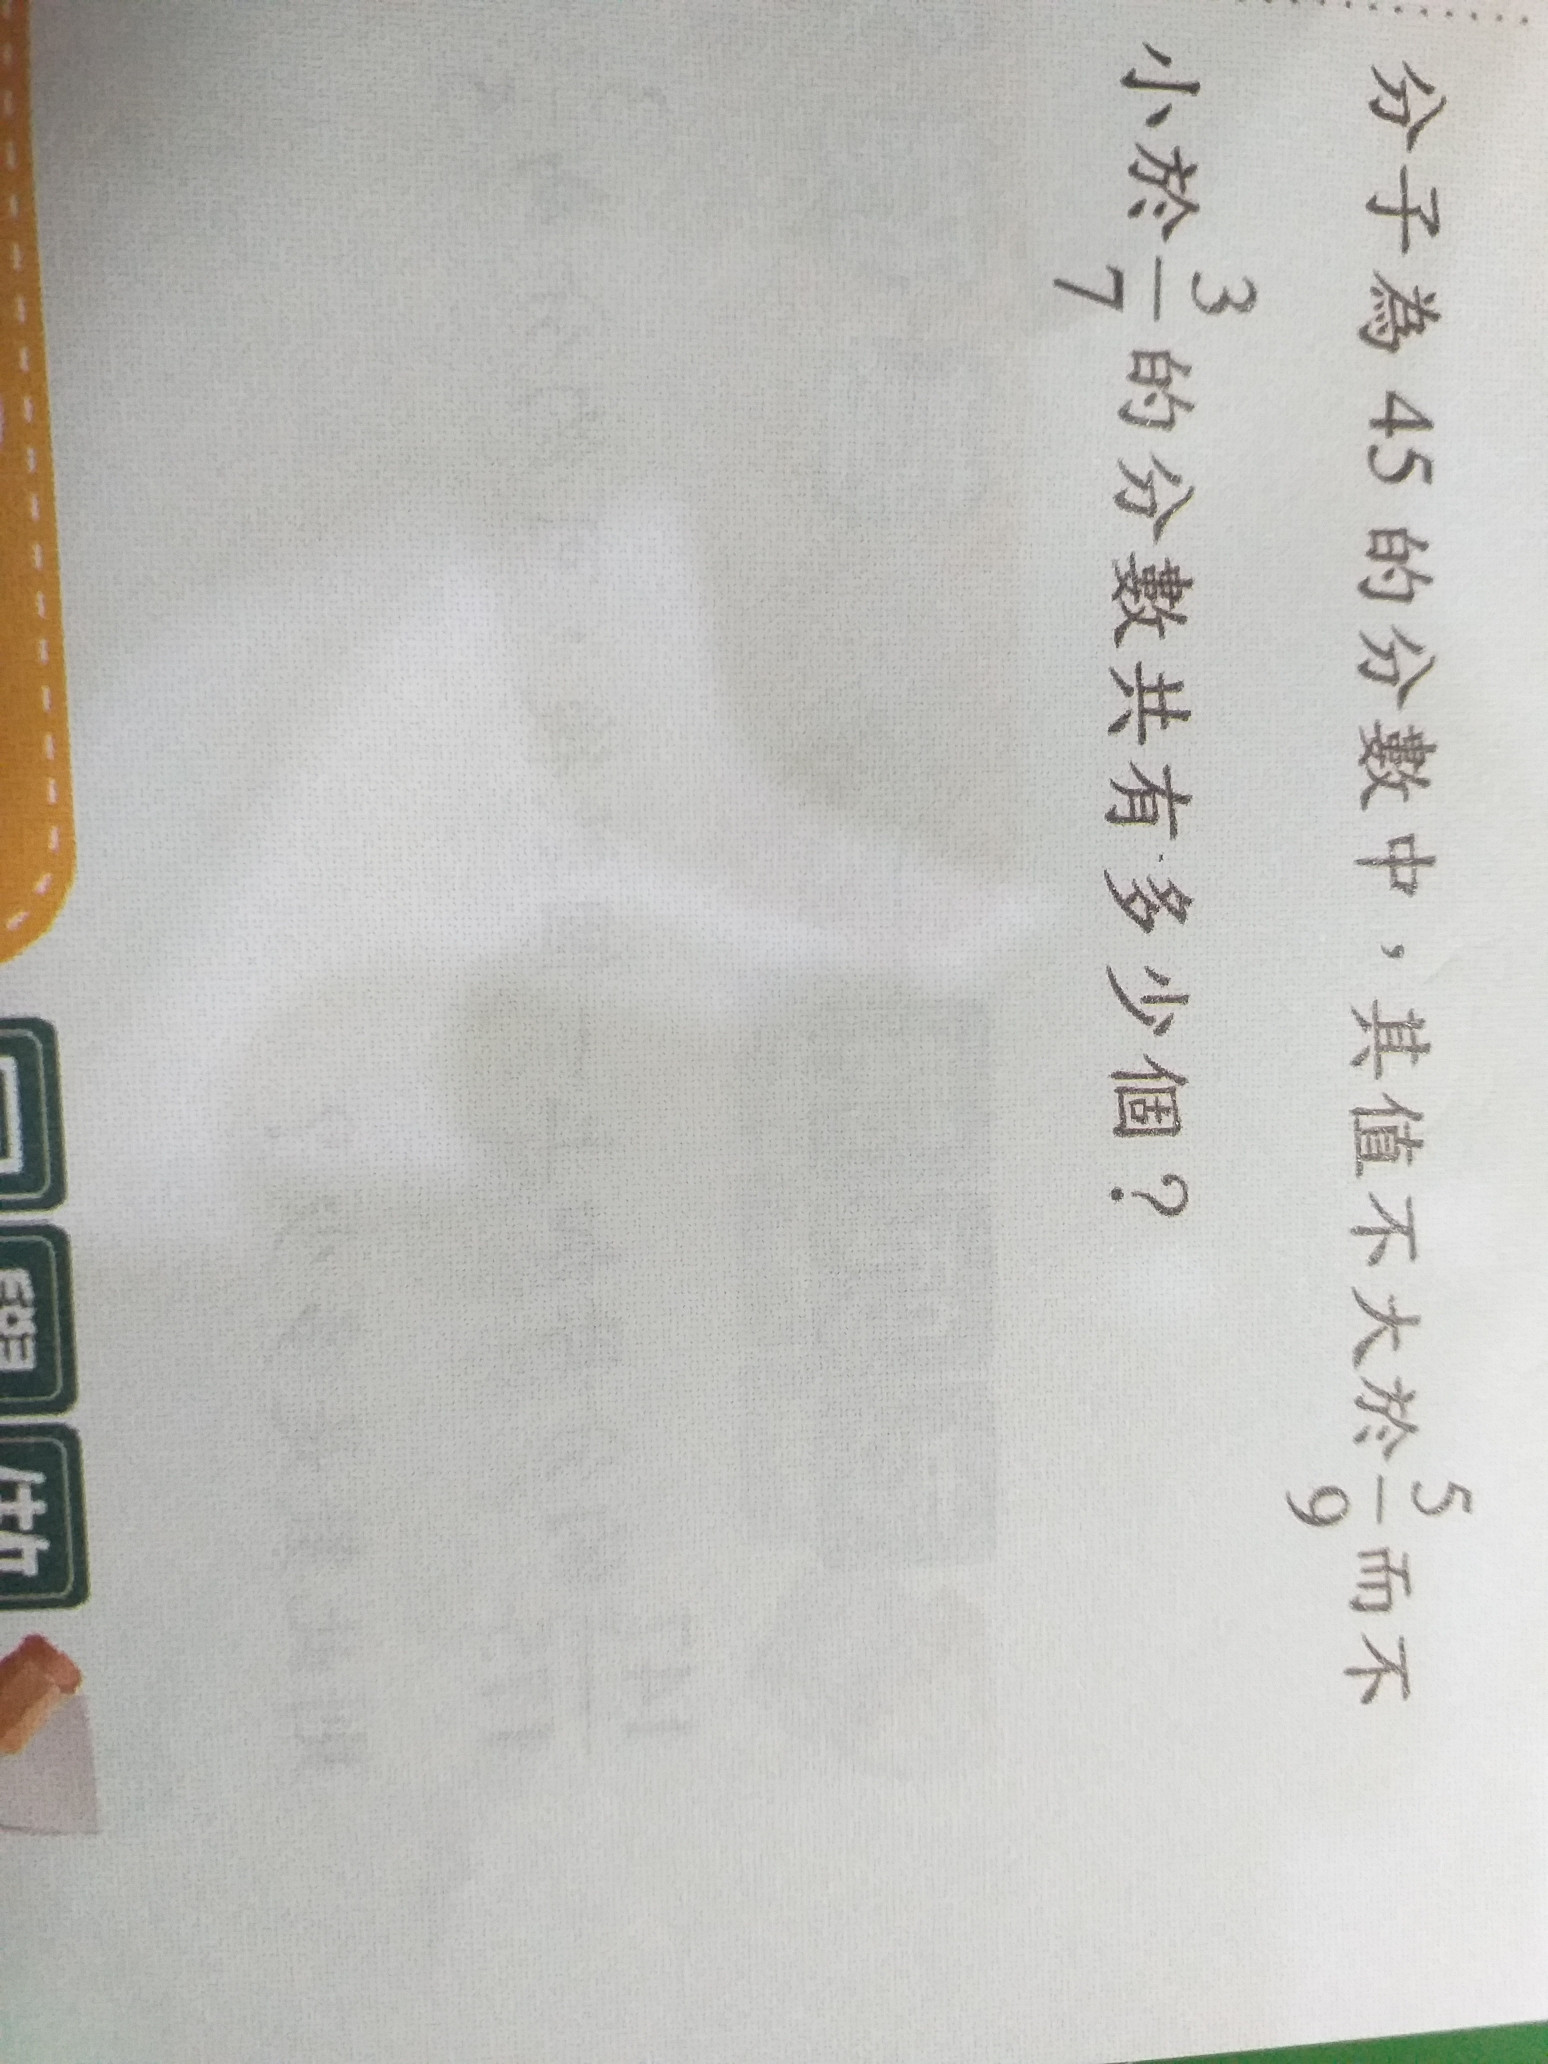 分子為 45 的分數中，其值不大於 5/9 而不
小於 3/7 的分數共有多少個？